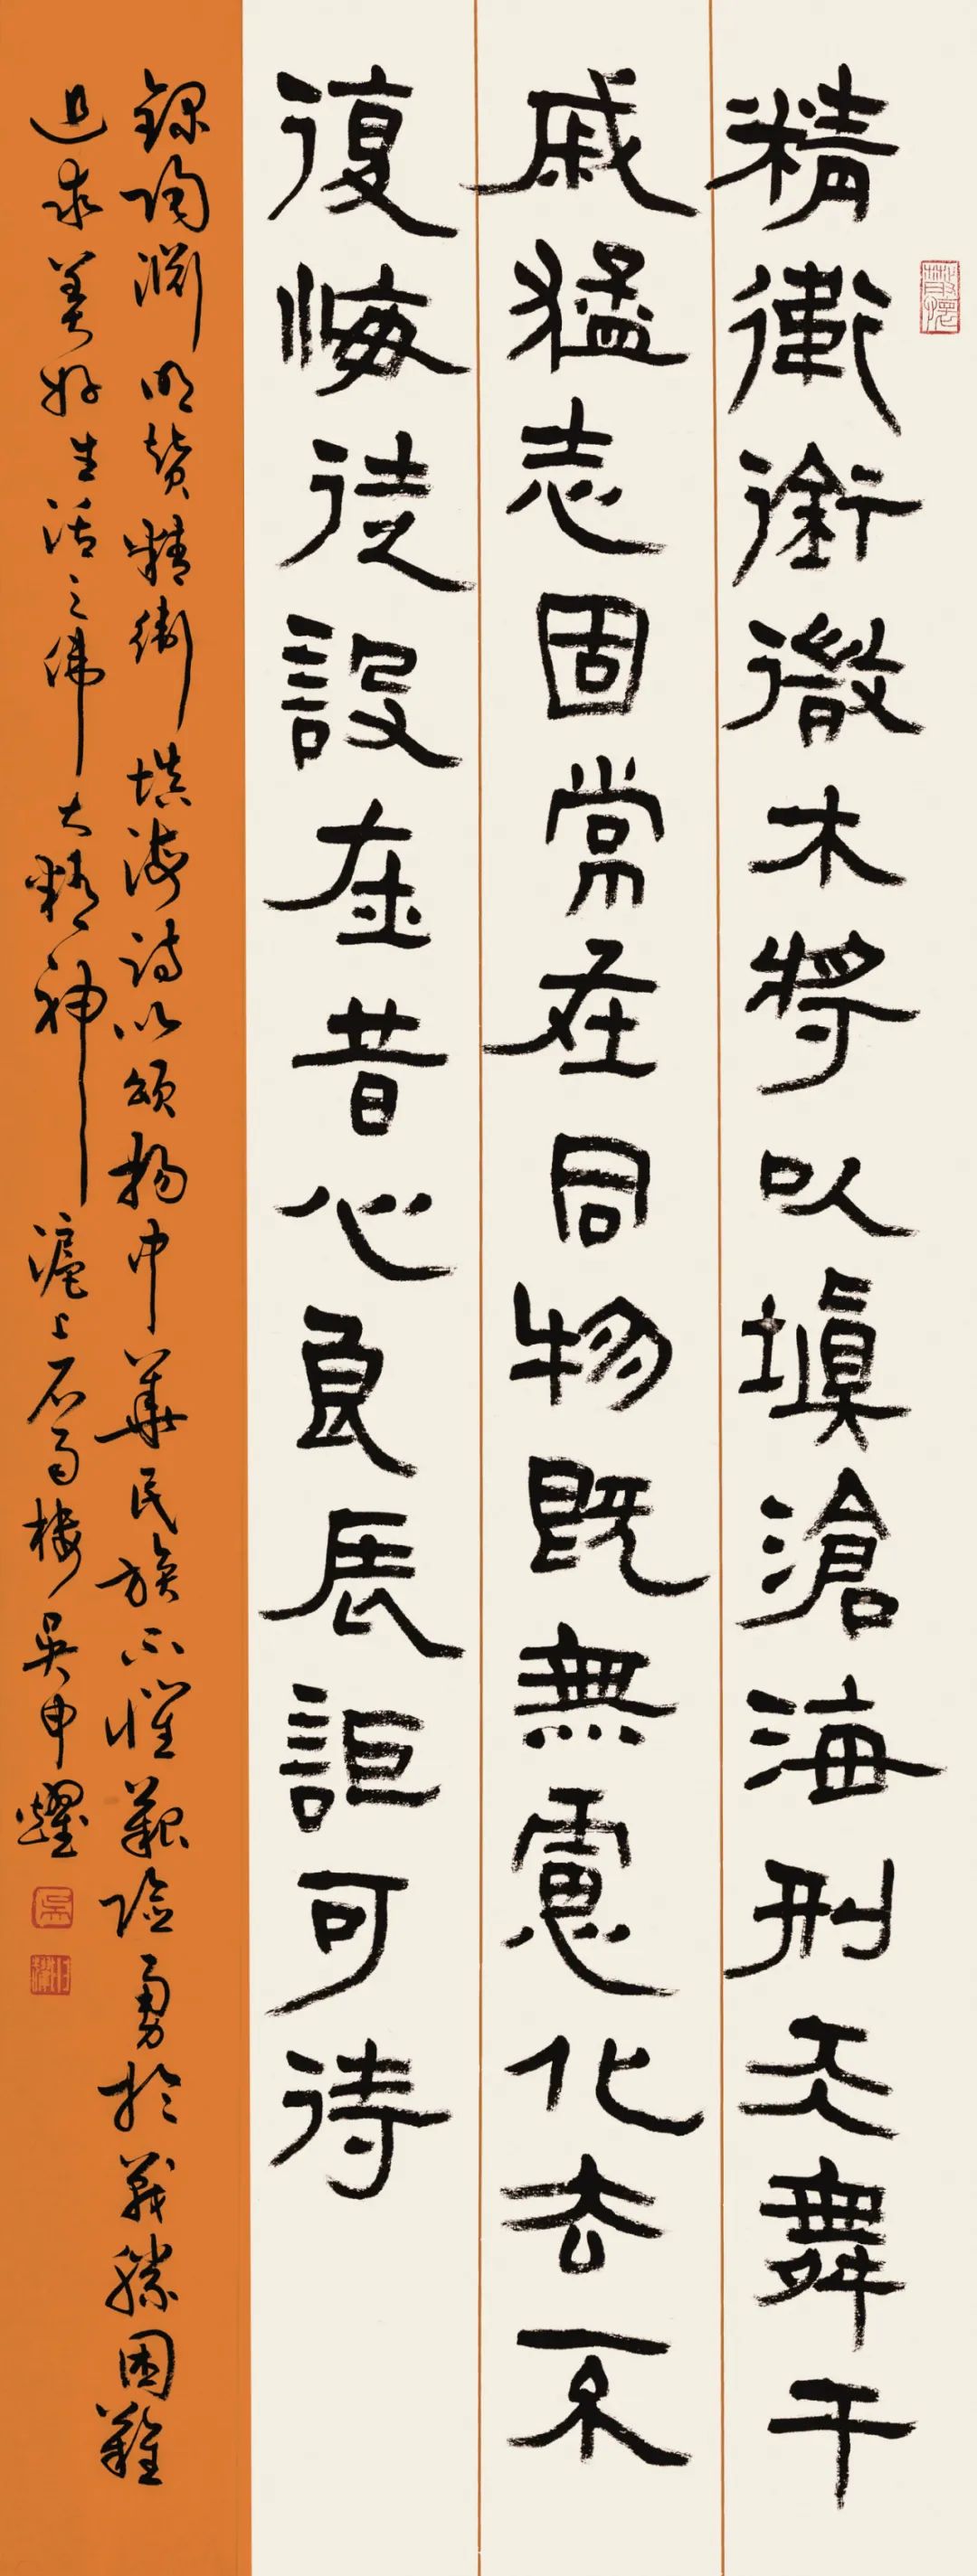 精衛銜微木將以填滄海刑天舞干
戚猛志固常在同物既無慮化去不
復悔徒設在昔心良辰詎可待
錄陶淵明贊精衛填海詩以頌揚中華民族不懼艱險勇於戰勝困難
追求美好生活之偉大精神 滬上石雨樓吳申耀